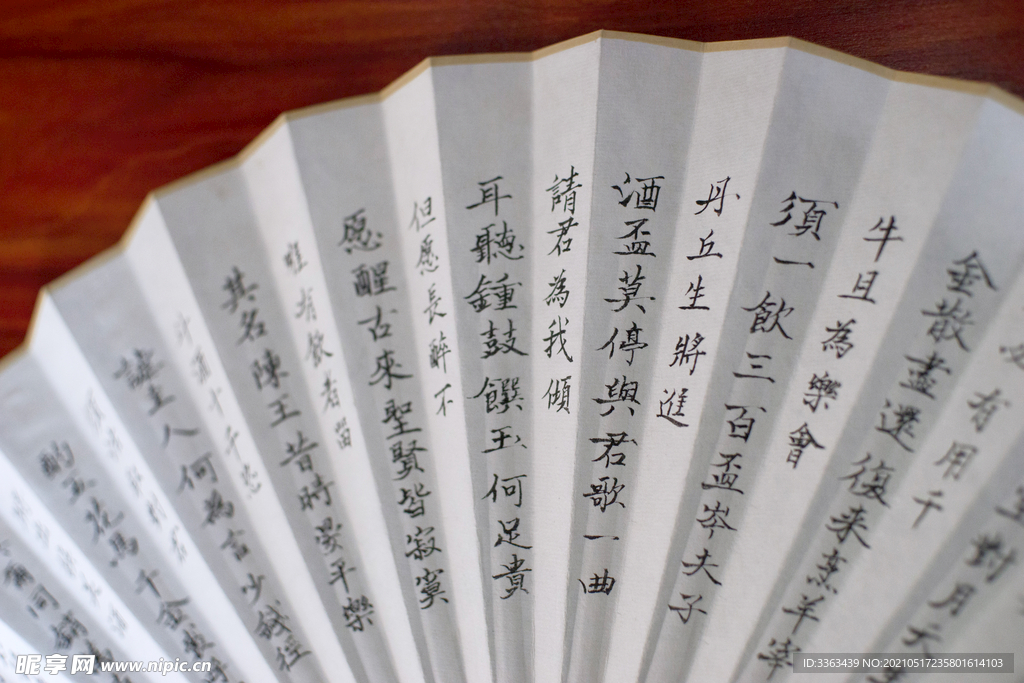 對月天
有用千
金散盡還復来烹羊宰
牛且為樂會
須一飲三百盃岑夫子
丹丘生將進
酒盃莫停與君歌一曲
請君為我傾
耳聽鍾鼓饌玉何足貴
但愿長醉不
愿醒古來聖賢皆寂寞
唯有飲者留
其名陳王昔時宴平樂
斗酒十千恣
謔主人何為言少錢徑
酌五花馬千金裘
爾同銷
昵享网 www.nipic.cn
ID:3363439 NO:20210517235801614103